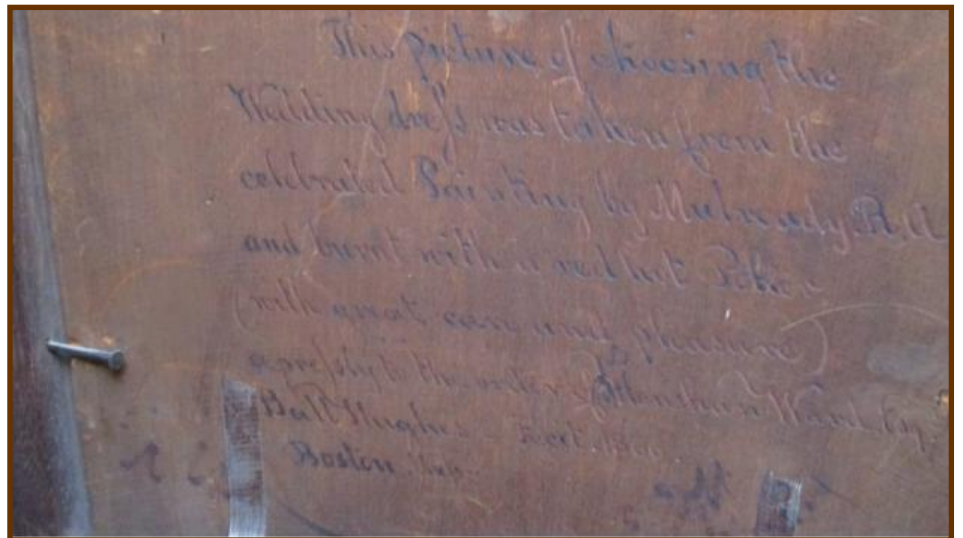 This picture of choosing the
Wedding dress was taken from the
celebrated Painting by Mulready R.A
and burnt with a red hot Poker
(with great care and pleasure)
expressly to the order of Ward Esq.
Ball Hughes Fecit
Boston